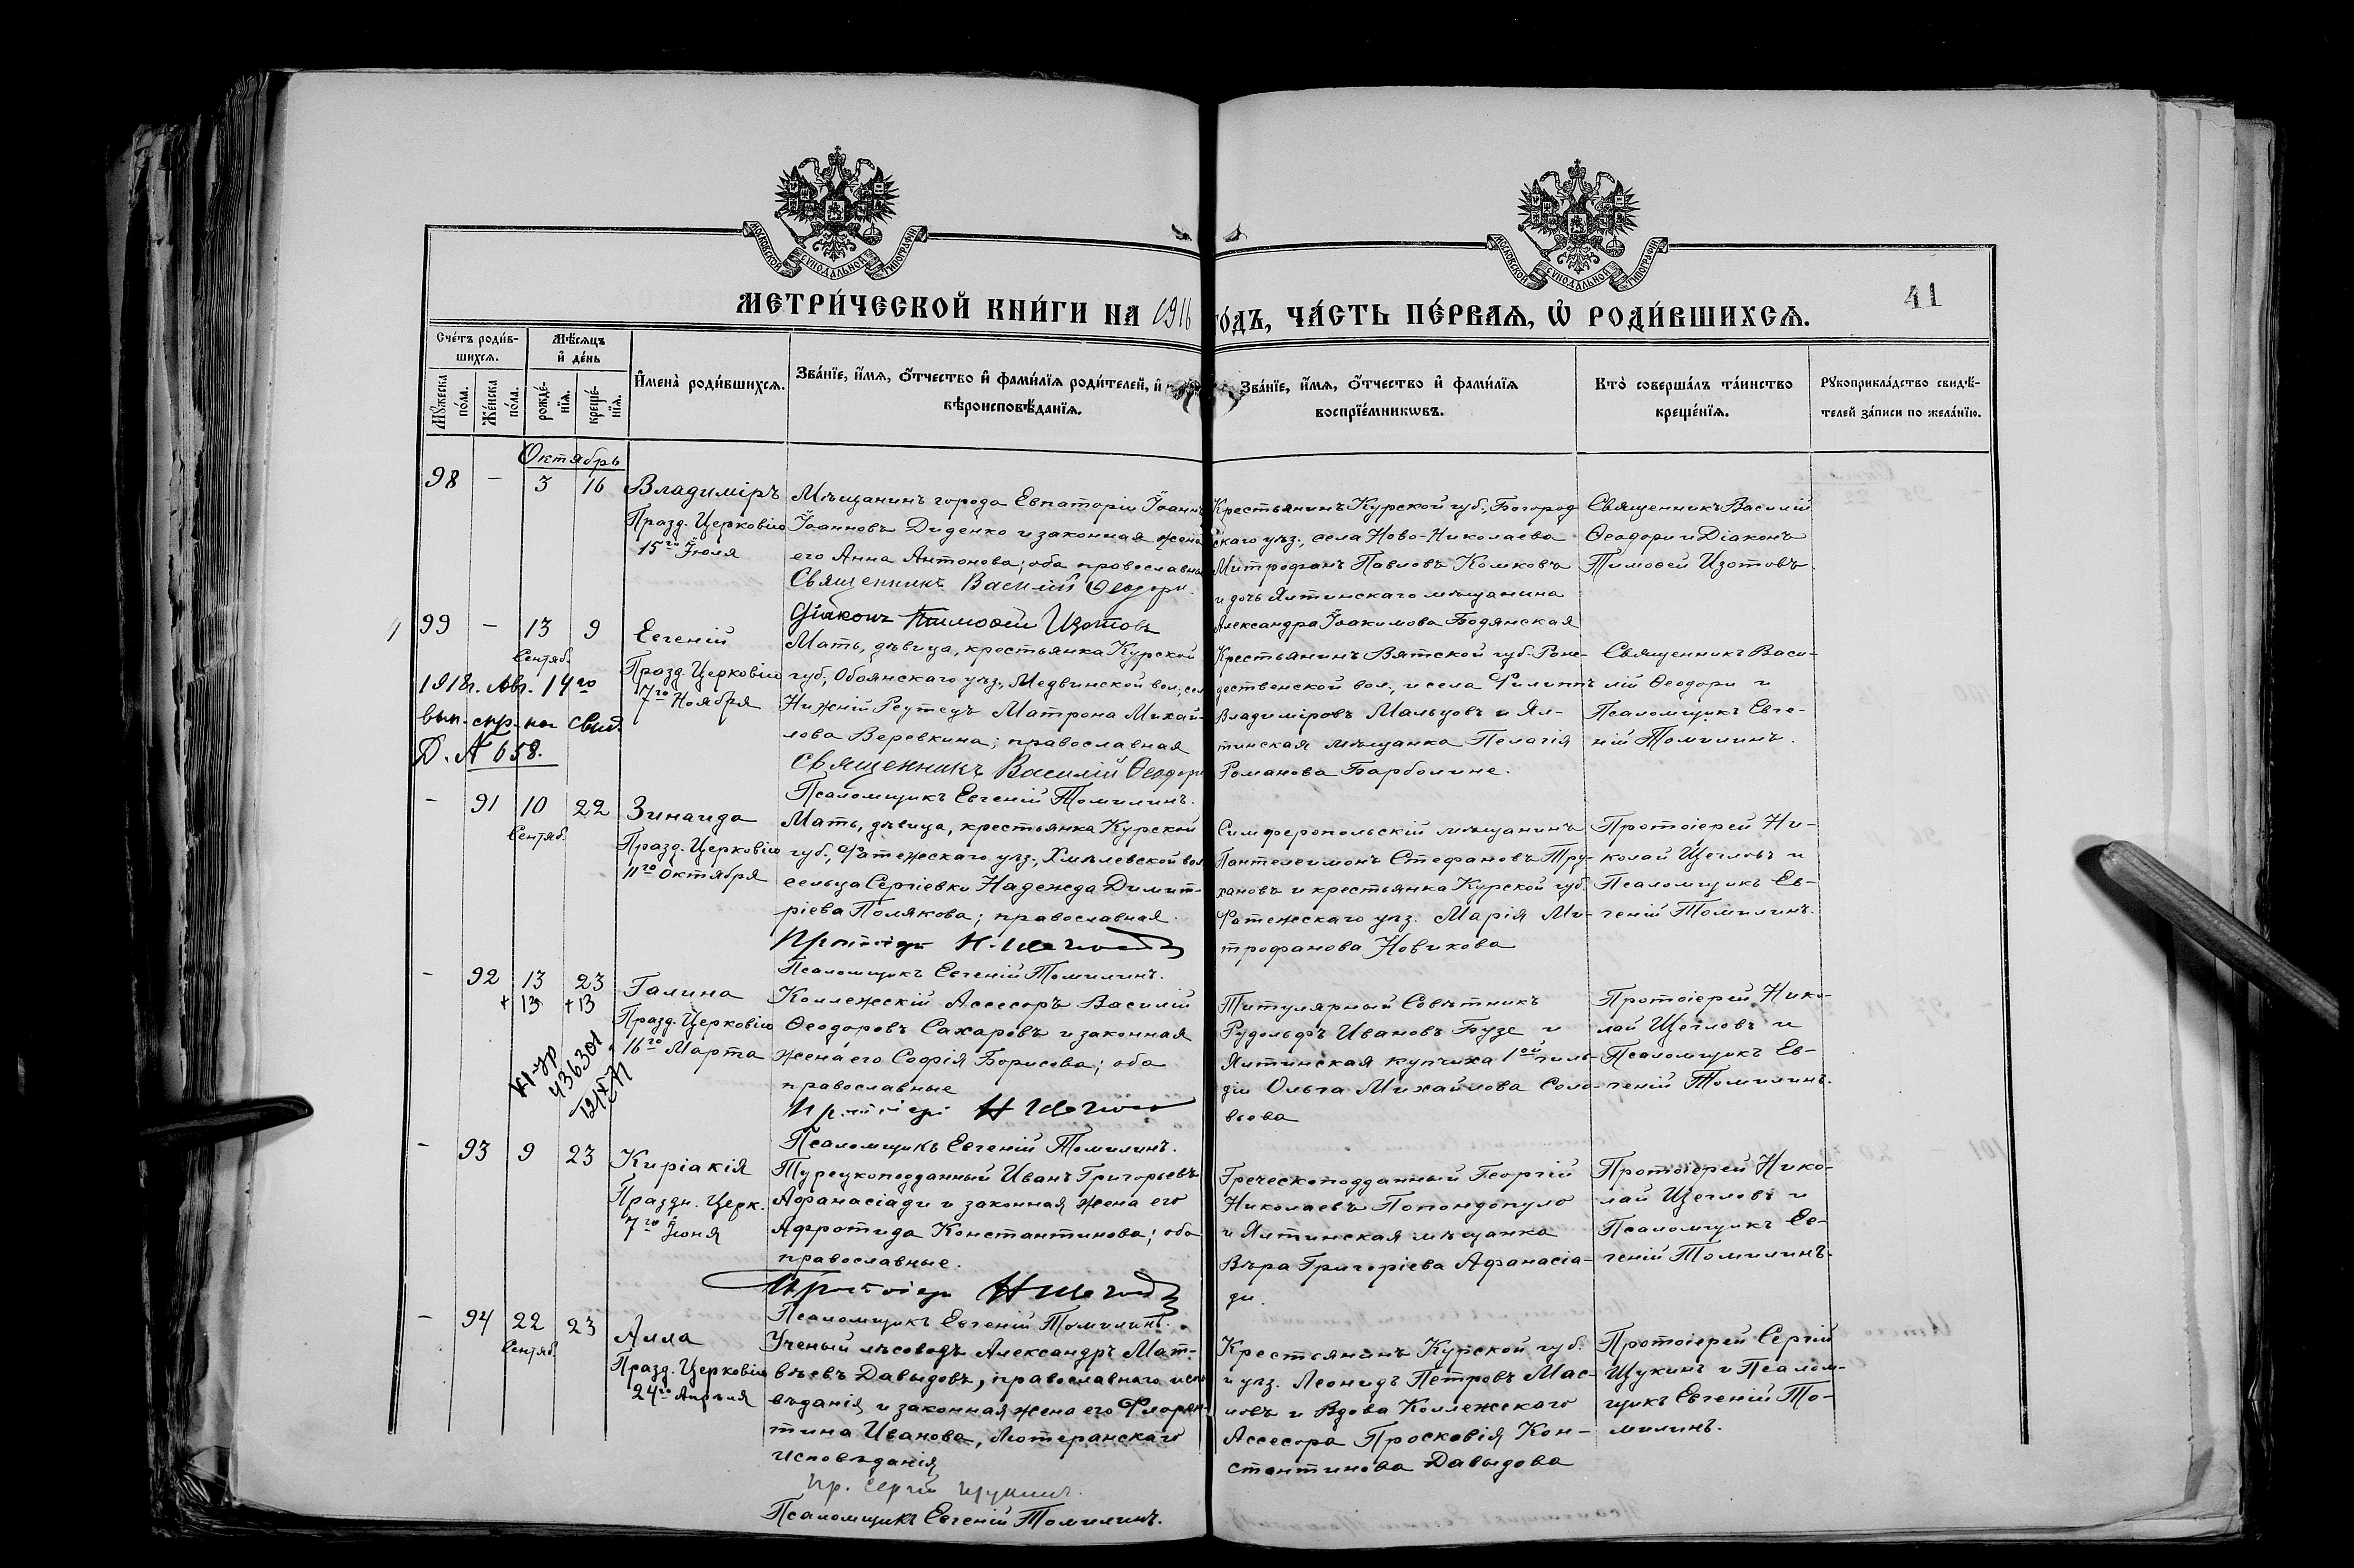 МОСКОВСКОЙ СѴНОДАЛЬНОЙ ТИПОГРАФІИ
МОСКОВСКОЙ СѴНОДАЛЬНОЙ ТИПОГРАФІИ
41
МЕТРИ́ЧЕСКОЙ КНИ́ГИ НА 1916 ГО́ДЪ, ЧА́СТЬ ПЕ́РВАѦ, Ѡ҆ РОДИ́ВШИХСѦ.
Сче́тъ роди́в-
шихсѧ.
Мꙋ́жеска по́ла.
Же́нска по́ла.
Мѣ́сѧцъ
и҆ де́нь
рожде́-
нїѧ.
креще́-
нїѧ.
И҆мена̀ роди́вшихсѧ.
Зва́нїе, и҆́мѧ, ѻ҆́тчество и҆ фами́лїѧ роди́телей, и҆
вѣроисповѣ́данїѧ.
Зва́нїе, и҆́мѧ, ѻ҆́тчество и҆ фами́лїѧ
воспрїе́мникѡвъ.
Кто̀ соверша́лъ та́инство
креще́нїѧ.
Рꙋкоприкла́дство свидѣ́-
телей за́писи по жела́нїю.
Октябрь
98 - 3 16
Владиміръ
Празд. Церковію
15го Іюля
Мѣщанинъ города Евпаторіи Іоаннъ
Іоанновъ Диденко и законная жена
его Анна Антонова; оба православны
Священникъ Василій Ѳеодори.
Діаконъ Тимоѳей Изотовъ
Крестьянинъ Курской губ., Богород
скаго уѣз., села Ново-Николаева
Митрофанъ Павловъ Комковъ
и дочь Ялтинскаго мѣщанина
Александра Іоакимова Бодянская
Священникъ Василій
Ѳеодори и Діаконъ
Тимоѳей Изотовъ
99 - 13 9
Сентяб.
1918г. Авг. 14го
вып. спр. на свид.
Д. № 658.
Евгеній
Празд. Церковію
7го Ноября
Мать, дѣвица, крестьянка Курской
губ., Обоянскаго уѣз., Медвинской вол., сел
Нижній Реутецъ Матрона Михай-
лова Веревкина; православная
Священникъ Василій Ѳеодори
Псаломщикъ Евгеній Томилинъ.
Крестьянинъ Вятской губ. Рож-
дественской вол., и села Филиппъ
Владиміровъ Мальцовъ и Ял-
тинская мѣщанка Пелагія
Романова Барболине.
Священникъ Васи-
лій Ѳеодори и
Псаломщикъ Евге-
ній Томилинъ.
- 91 10 22
Сентяб.
Зинаида
Празд. Церковію
11го Октября
Мать, дѣвица, крестьянка Курской
губ., Фатежскаго уѣз., Хмѣлевской вол
сельца Сергіевки Надежда Димит-
ріева Полякова; православная
Протоіер. Н. Щегловъ
Псаломщикъ Евгеній Томилинъ.
Симферопольскій мѣщанинъ
Пантелеимонъ Стефановъ Тру-
хановъ и крестьянка Курской губ.
Фатежскаго уѣз. Марія Ми-
трофанова Новикова
Протоіерей Ни-
колай Щегловъ и
Псаломщикъ Ев-
геній Томилинъ.
- 92 13 23
+13 +13
436301
Галина
Празд. Церковію
16го Марта
Коллежскій Ассесоръ Василій
Ѳеодоровъ Сахаровъ и законная
жена его Софія Борисова; оба
православные
Протоіер. Н Щегловъ
Псаломщикъ Евгеній Томилинъ.
Титулярный Совѣтникъ
Рудольфъ Ивановъ Бузе и
Ялтинская купчиха 1ой гиль-
діи Ольга Михайлова Соло-
вьова
Протоіерей Нико-
лай Щегловъ и
Псаломщикъ Ев-
геній Томилинъ.
- 93 9 23
Киріакія
Праздн. Церк.
7го Іюня
Турецкоподданный Иванъ Григорьевъ
Афанасіади и законная жена его
Афротида Константинова; оба
православные.
Протоіер. Н Щегловъ
Псаломщикъ Евгеній Томилинъ.
Греческоподданный Георгій
Николаевъ Попондопуло
и Ялтинская мѣщанка
Вѣра Григоріева Афанасіа-
ди.
Протоіерей Нико-
лай Щегловъ и
Псаломщикъ Ев-
геній Томилинъ.
- 94 22 23
Сентяб.
Алла
Празд. Церковію
24го Апрѣля
Ученый лѣсоводъ Александръ Мат-
вѣевъ Давыдовъ, православнаго испо
вѣданія, и законная жена его Флорен-
тина Иванова, Лютеранскаго
исповѣданія
Пр. Сергій Щукинъ.
Псаломщикъ Евгеній Томилинъ.
Крестьянинъ Курской губ.
и уѣз. Леонидъ Петровъ Мас-
ловъ и Вдова Коллежскаго
Ассесора Просковія Кон-
стантинова Давыдова
Протоіерей Сергій
Щукинъ и Псалом-
щикъ Евгеній То-
милинъ.